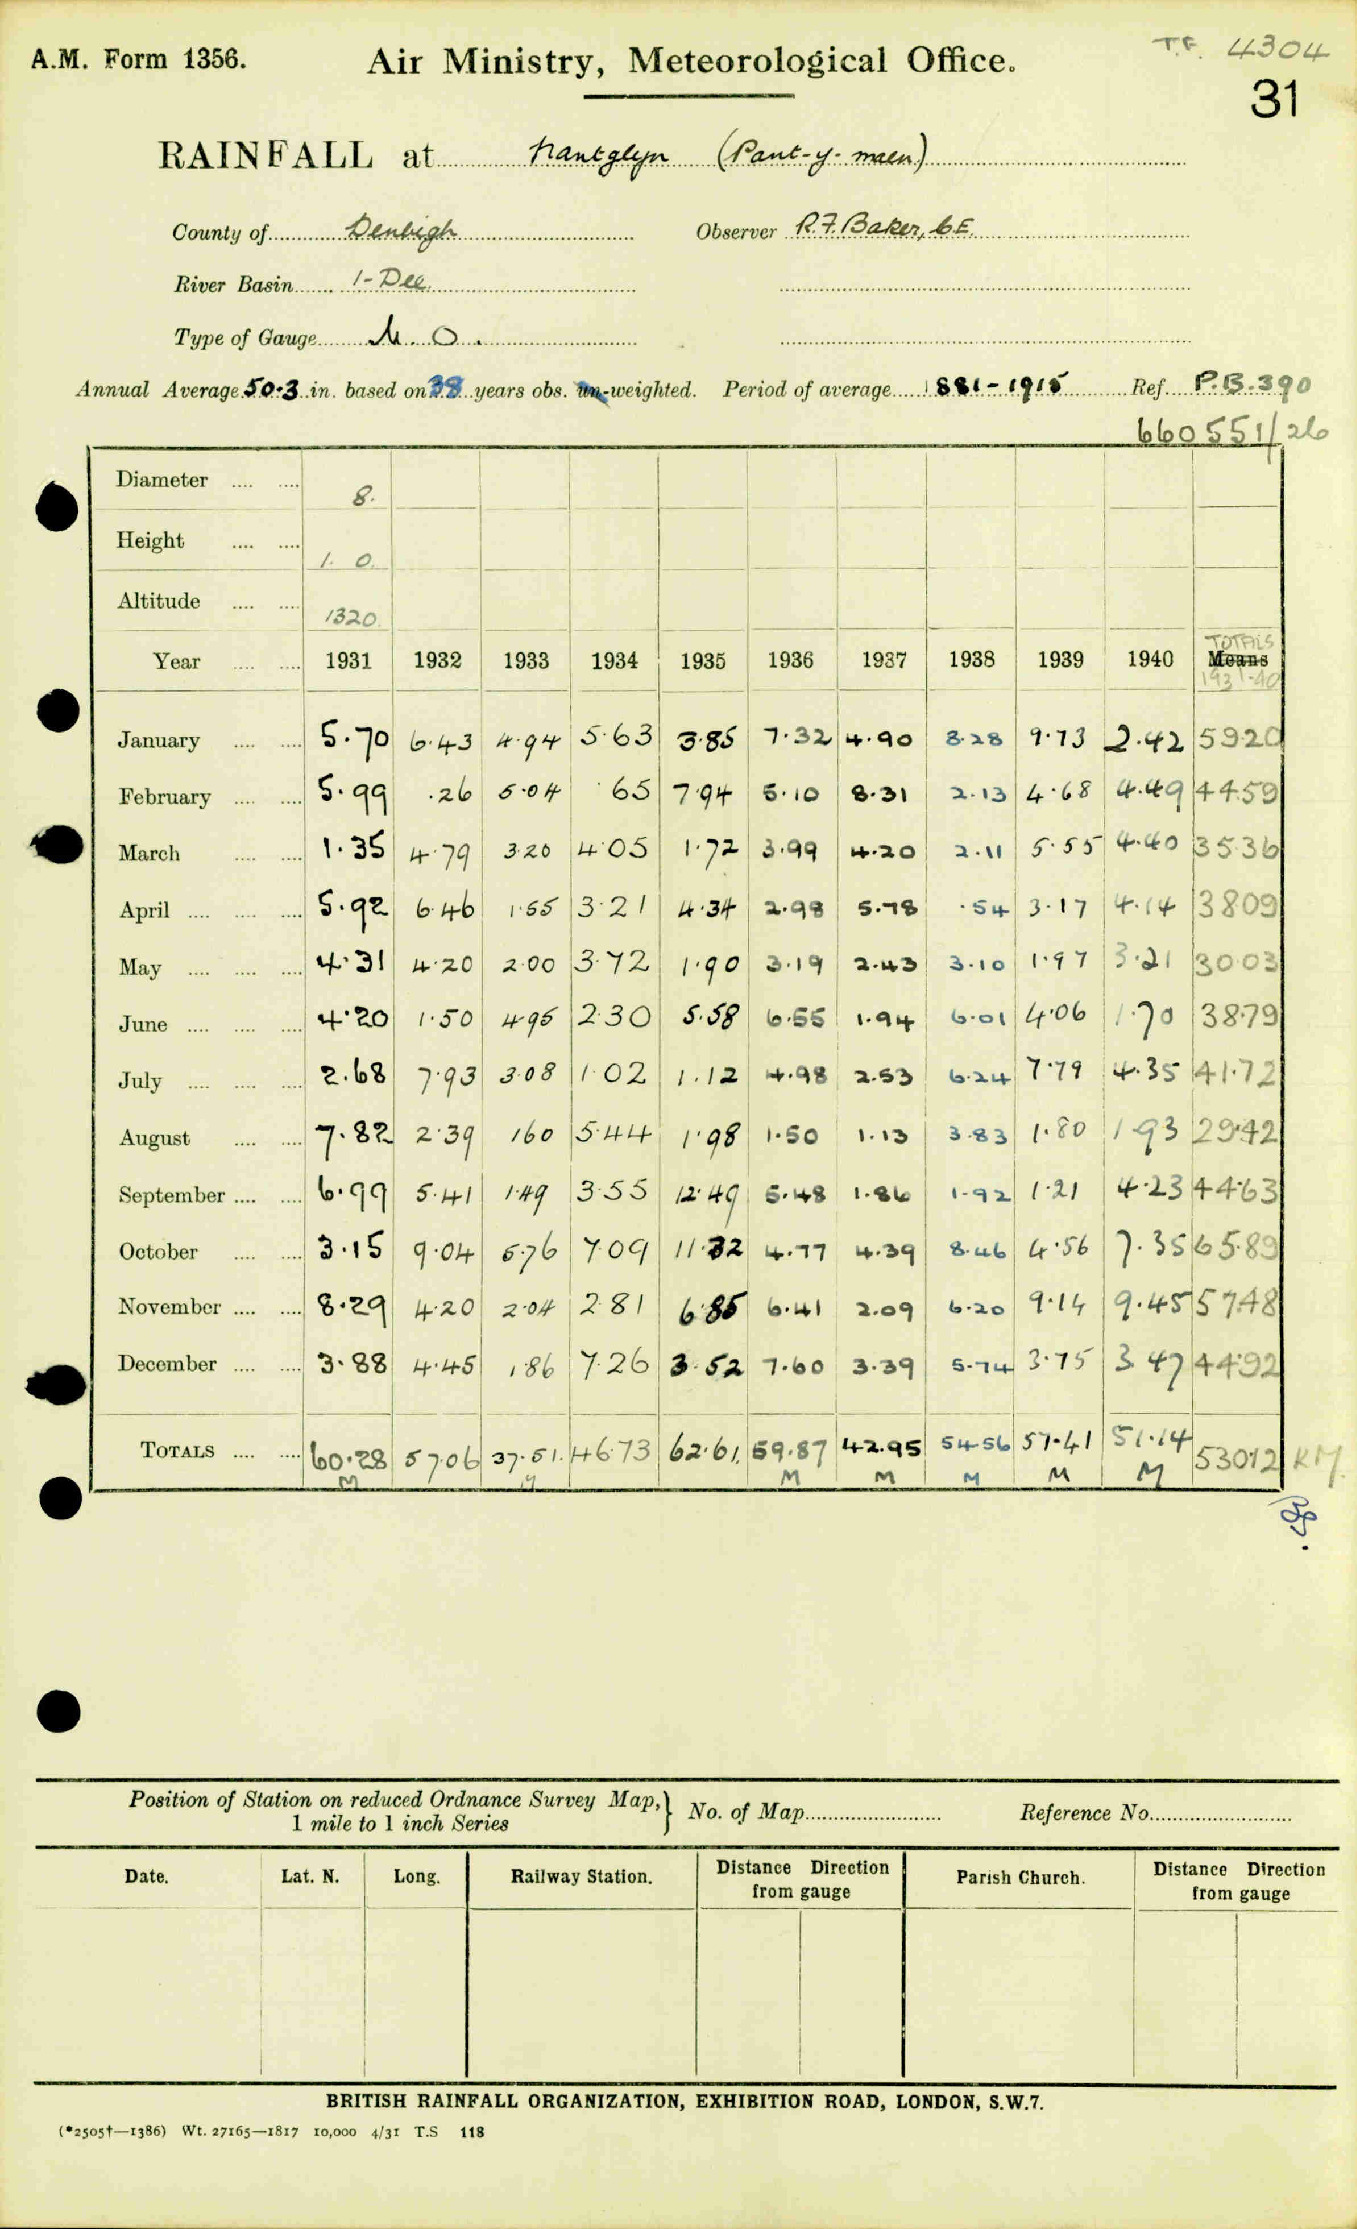 A.M. Form 1356. Air Ministry, Meteorological Office. T.F. 4304
31
RAINFALL at Nantglyn (Pant-y-maen)
County of Denbigh Observer R.F. Baker, C.E.
River Basin 1-Dee
Type of Gauge M.O.
Annual Average 50.3 in. based on 38 years obs. un-weighted. Period of average 1881-1915 Ref. P.B.390
660551/26
Diameter .... .... 8.
Height .... .... 1. 0.
Altitude .... .... 1320
TOTALS
Year .... .... 1931 1932 1933 1934 1935 1936 1937 1938 1939 1940 Means
1931-40
January .... .... 5.70 6.43 4.94 5.63 3.85 7.32 4.90 8.28 9.73 2.42 59.20
February .... .... 5.99 .26 5.04 .65 7.94 5.10 8.31 2.13 4.68 4.49 44.59
March .... .... 1.35 4.79 3.20 4.05 1.72 3.99 4.20 2.11 5.55 4.40 35.36
April .... .... .... 5.92 6.46 1.55 3.21 4.34 2.98 5.78 .54 3.17 4.14 38.09
May .... .... .... 4.31 4.20 2.00 3.72 1.90 3.19 2.43 3.10 1.97 3.21 30.03
June .... .... .... 4.20 1.50 4.95 2.30 5.58 6.55 1.94 6.01 4.06 1.70 38.79
July .... .... .... 2.68 7.93 3.08 1.02 1.12 4.98 2.53 6.24 7.79 4.35 41.72
August .... .... 7.82 2.39 1.60 5.44 1.98 1.50 1.13 3.83 1.80 1.93 29.42
September .... .... 6.99 5.41 1.49 3.55 12.49 5.48 1.86 1.92 1.21 4.23 44.63
October .... .... 3.15 9.04 5.76 7.09 11.32 4.77 4.39 8.46 4.56 7.35 65.89
November .... .... 8.29 4.20 2.04 2.81 6.85 6.41 2.09 6.20 9.14 9.45 57.48
December .... .... 3.88 4.45 1.86 7.26 3.52 7.60 3.39 5.74 3.75 3.47 44.92
TOTALS .... .... 60.28 57.06 37.51 46.73 62.61 59.87 42.95 54.56 57.41 51.14 530.12 RM
M M M M M M M
Position of Station on reduced Ordnance Survey Map,
1 mile to 1 inch Series
No. of Map Reference No.
Date. Lat. N. Long. Railway Station. Distance Direction from gauge Parish Church. Distance Direction from gauge
BRITISH RAINFALL ORGANIZATION, EXHIBITION ROAD, LONDON, S.W.7.
(*2505†—1386) Wt. 27165—1817 10,000 4/31 T.S 118